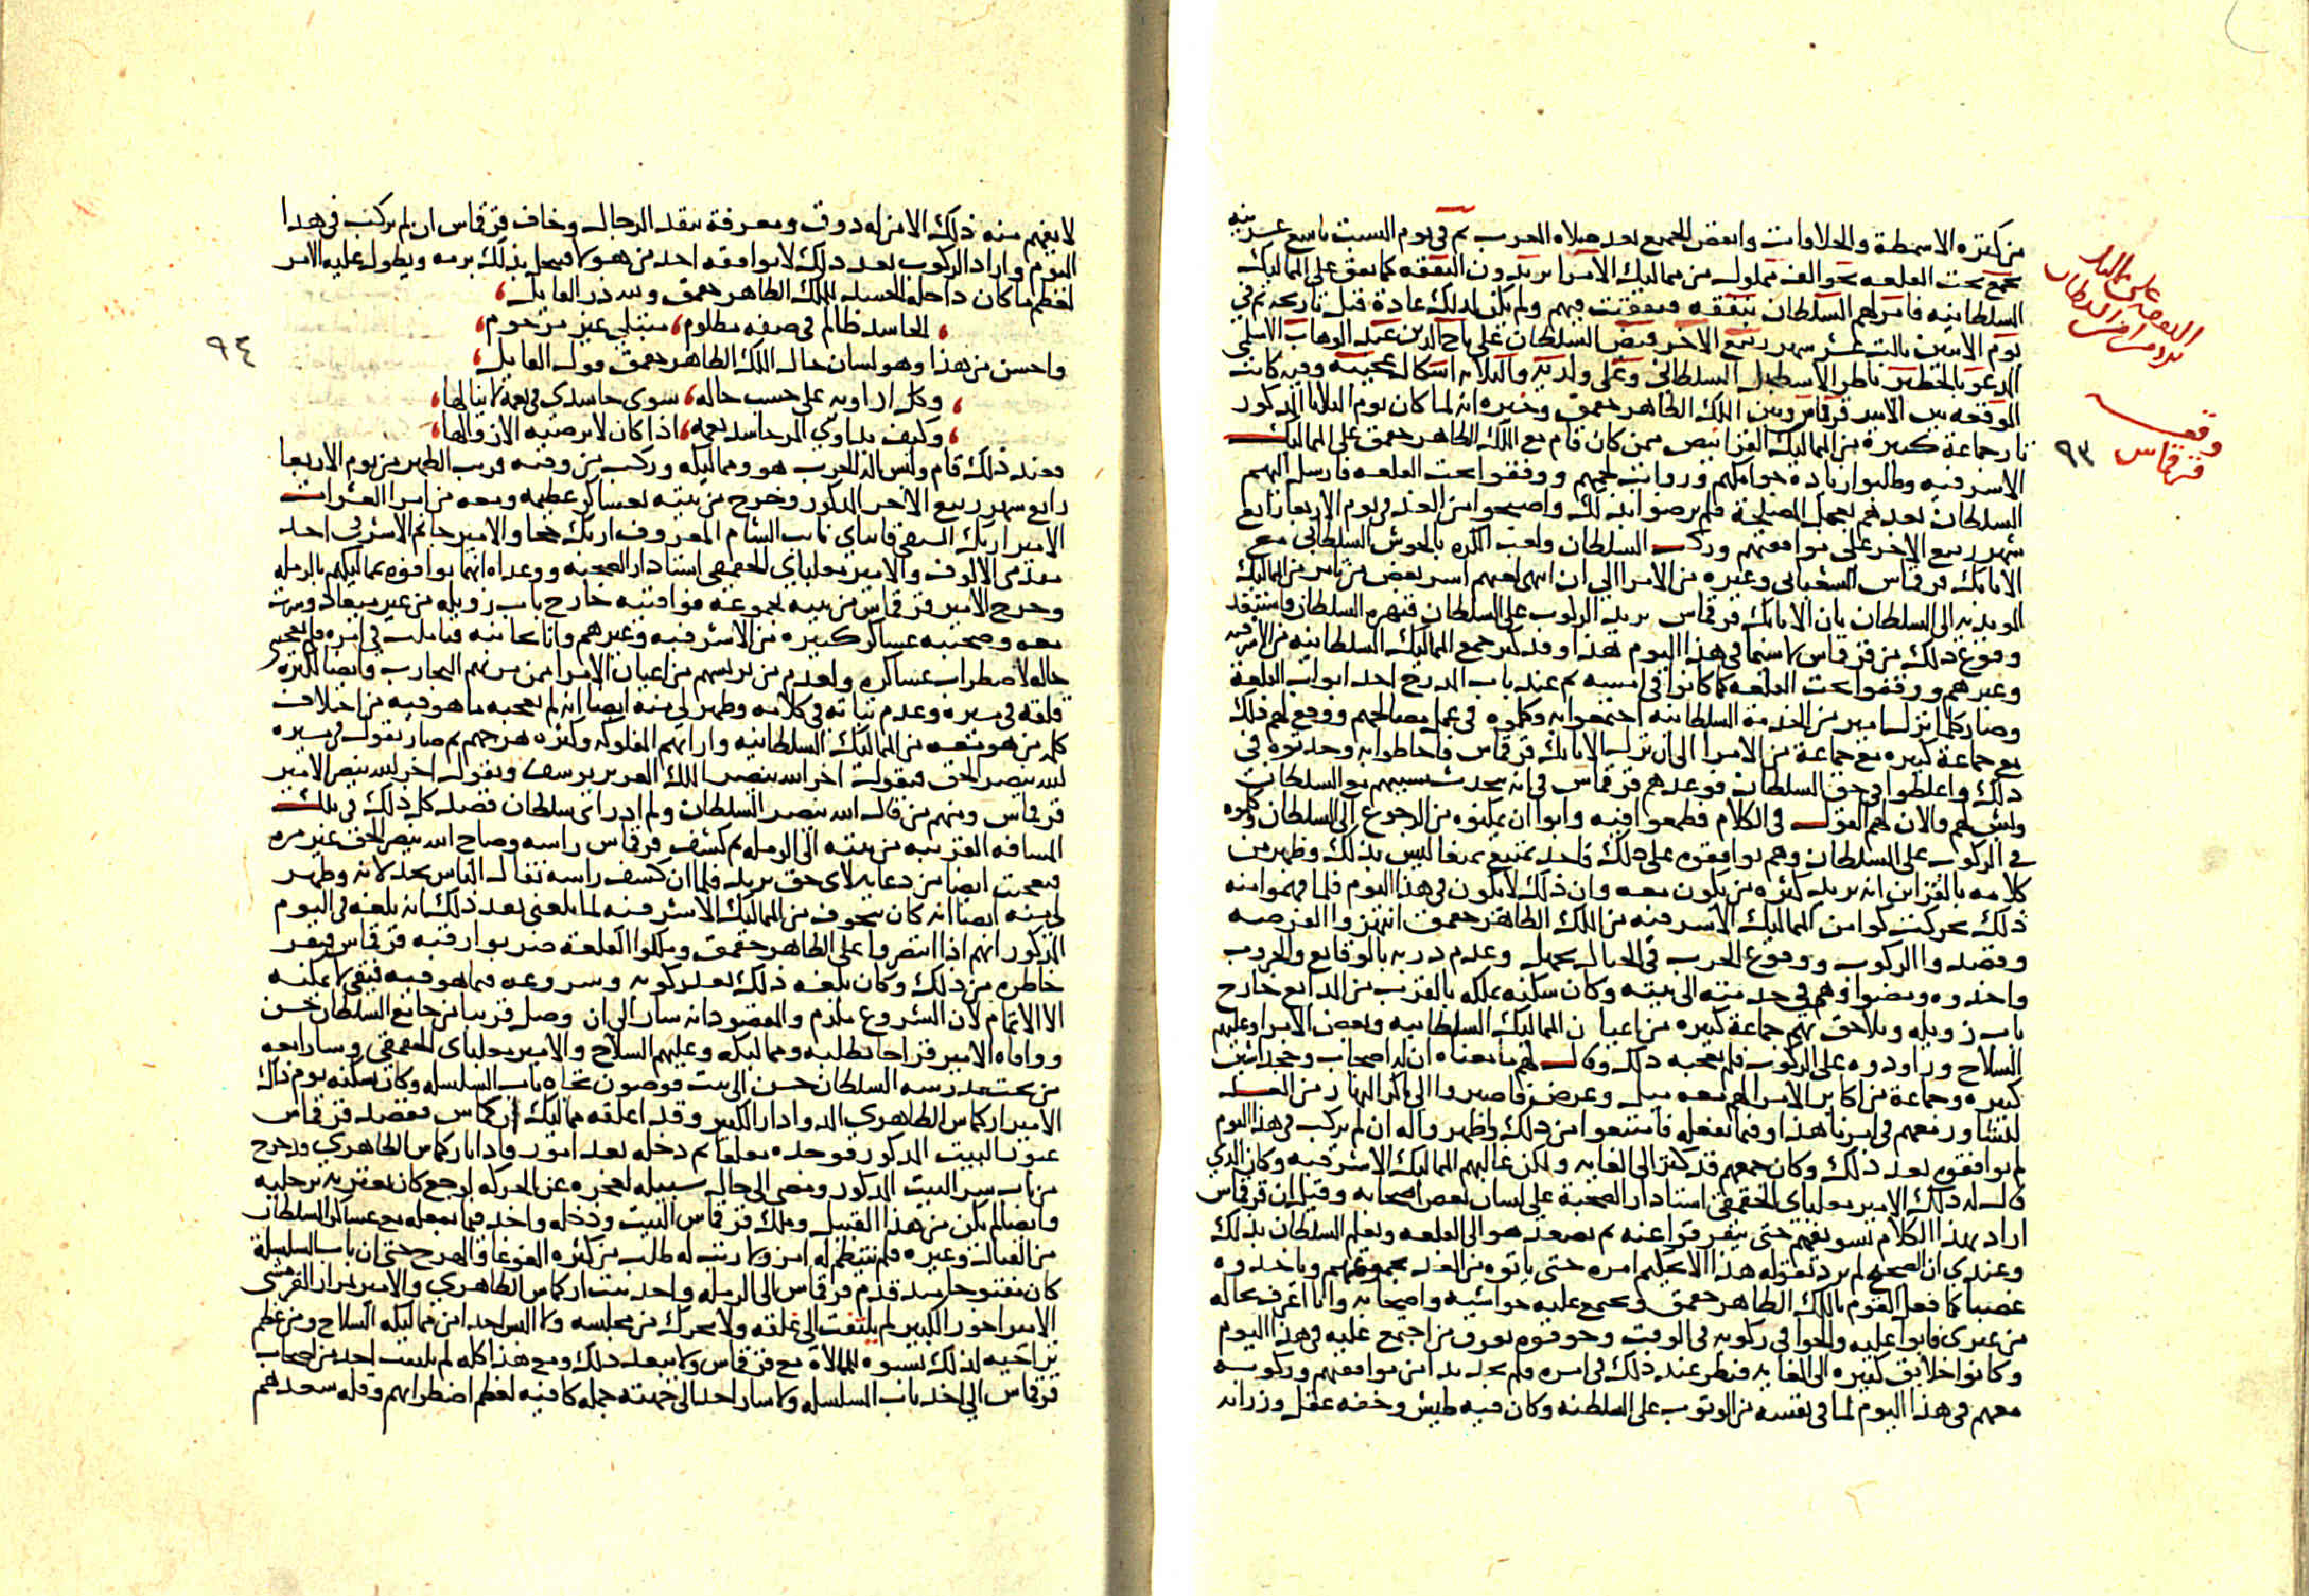 من كثره الاسمطة والحلاوات وانفض الجميع بعد صلاه المغرب ثم في يوم السبت تاسع عشرينه
تجمع تحت القلعه نحو الف مملوك من مماليك الامرا يريدون النفقه كما نفق على المماليك
السلطانيه فامر لهم السلطان بنفقه فنفقت فيهم ولم يكن لذلك عادة قبل تاريخه ثم في
يوم الاثنين ثالث عشر شهر ربيع الاخر قبض السلطان على تاج الدين عبد الوهاب الاسلمي
المدعو بالخطير ناظر الاسطبل السلطاني وعلى ولديه والثلاثه اشكال عجيبه وفيه كانت
الوقعه بين الامير قرقماس وبين الملك الظاهر جقمق وخبره انه لما كان يوم الثلاثا المذكور
ثار جماعة كبيرة من المماليك القرانيص ممن كان قام مع الملك الظاهر جقمق على المماليك
الاشرفيه وطلبوا زيادة جوامكهم ورواتب لحمهم ووقفوا تحت القلعه فارسل اليهم
السلطان يعدهم بعمل المصلحة فلم يرضوا بذلك واصبحوا من الغد في يوم الاربعا رابع
شهر ربيع الاخر على مواقفهم وركب السلطان ولعب الكره بالحوش السلطاني مع
الاتابك قرقماس الشعباني وغيره من الامرا الى ان انتهى لعبهم اسر بعض من تامر من المماليك
المويديه الى السلطان بان الاتابك قرقماس يريد الركوب على السلطان فنهره السلطان واستبعد
وقوع ذلك من قرقماس لا سيما في هذا اليوم هذا وقد كثر جمع المماليك السلطانيه من الاشرفيه
وغيرهم ووقفوا تحت القلعه كما كانوا في امسه ثم عند باب المدرج احد ابواب القلعة
وصار كلما نزل امير من الخدمة السلطانيه اجتمعوا به وكلموه في عمل مصالحهم ووقع لهم ذلك
مع جماعة كبيره مع جماعة من الامرا الى ان نزل الاتابك قرقماس فاحاطوا به وحدثوه في
ذلك واغلظوا في حق السلطان فوعدهم قرقماس في انه يتحدث بسببهم مع السلطان
وبش لهم والان لهم القول في الكلام فطمعوا فيه وابوا ان يمكنوه من الرجوع الى السلطان وكلموه
في الركوب على السلطان وهم يوافقوه على ذلك فاخذ يمتنع تمنعا ليس بذلك وظهر من
كلامه بالقراين انه يريد كثره من يكون معه وان ذلك لا يكون في هذا اليوم فلما فهموا منه
ذلك تحركت كوامن المماليك الاشرفيه من الملك الظاهر جقمق انتهزوا الفرصه
وقصدوا الركوب ووقوع الحرب في الحال بجهل وعدم دربه بالوقايع والحروب
واخذوه ومضوا وهم في خدمته الى بيته وكان سكنه بملكه بالقرب من المدابغ خارج
باب زويله وتلاحق بهم جماعة كبيره من اعيان المماليك السلطانيه وبعض الامرا وعليهم
السلاح وراودوه على الركوب فلم يعجبه ذلك وقال لهم ما معناه ان له اصحاب وخجداشيه
كبيره وجماعة من اكابر الامرا لهم معه ميل وغرض فاصبروا الى باكر النهار من الغد
لنتشاور معهم في امرنا هذا وفيما نفعله فامتنعوا من ذلك واظهروا له ان لم يركب في هذا اليوم
لم يوافقوه بعد ذلك وكان جمعهم قد كثر الى الغايه ولكن غالبهم المماليك الاشرفيه وكان الذي
قال له ذلك الامير مغلباي الجقمقي استادار الصحبة على لسان بعض اصحابه وقيل ان قرقماس
اراد بهذا الكلام تسويفهم حتى يتفرقوا عنه ثم يصعد هو الى القلعه ويعلم السلطان بذلك
وعندي ان الصحيح لم يرد بقوله هذا الا تجليهم امره حتى ياتوه من الغد بجموعهم وياخذوه
غصبا كما فعل القوم بالملك الظاهر جقمق وتجمع عليه حواشيه واصحابه وانا اعرف بحاله
من غيري فابوا عليه والحوا في ركوبه في الوقت وخوفوه تفرق من اجتمع عليه في هذا اليوم
وكانوا خلايق كثيره الى الغايه فنظر عند ذلك في امره فلم يجد بدا من موافقتهم وركوبه
معهم في هذا اليوم لما في نفسه من الوثوب على السلطنه وكان فيه طيش وخفه عقل وزانه
وقعه
قرقماس
٩٣
لا يفهم منه ذلك الا من له ذوق ومعرفة بنقد الرجال وخاف قرقماس ان لم يركب في هذا
اليوم واراد الركوب بعد ذلك لا يوافقه احد من هولا فيحل بذلك برمه ويطول عليه الامر
لعظم ما كان داخله الحسد للملك الظاهر جقمق ولله در القايل
الحاسد ظالم في صفه مظلوم مبتلي غير مرحوم
واحسن من هذا وهو لسان حال الملك الظاهر جقمق قول القايل
وكل اداويه على حسب حاله سوى حاسدي فهي لا ينالها
وكيف يداوي المر حاسد نعمه اذا كان لا يرضيه الا زوالها
فعند ذلك قام ولبس اله الحرب هو ومماليكه وركب من وقته قرب الظهر من يوم الاربعا
رابع شهر ربيع الاخر المذكور وخرج من بيته بعساكر عظيمه ومعه من امرا العشرات
الامير ازبك السيفي قانباي نايب الشام المعروف ازبك جحا والامير جانم الاشرفي احد
مقدمي الالوف والامير مغلباي الجقمقي استادار الصحبه ووعداه انهما يوافوه بمماليكهم بالرمله
وخرج الامير قرقماس من بيته بجموعه فوافيته خارج باب زويله من غير ميعاد وسرت
معه وصحبته عساكر كبيره من الاشرفيه وغيرهم وانا بجانبه فتاملت في امره فلم يعجبني
حاله لاضطراب عساكره ولعدم من يراسهم من اعيان الامرا ممن مرت بهم التجارب وايضا لكثرة
قلقه في سيره وعدم ثباته في كلامه وظهر لي منه ايضا انه لم يعجبه ما هو فيه من اختلاف
كلمه من هو معه من المماليك السلطانيه وارايهم المفلوكه وكثره هرجهم ثم صار يقول في سيره
الله ينصر الحق فيقول اخر الله ينصر الملك العزيز يوسف ويقول اخر الله ينصر الامير
قرقماس ومنهم من قال الله ينصر السلطان ولم ادر اي سلطان قصد كل ذلك في تلك
المسافه القريبه من بيته الى الرمله ثم كشف قرقماس راسه وصاح الله ينصر الحق غير مره
فتعجبت ايضا من دعايه لاي حق يريد فلما ان كشف راسه تفال الناس بخذلانه وظهر
لي منه ايضا انه كان يتخوف من المماليك الاشرفيه لما بلغني بعد ذلك انه بلغه في اليوم
المذكور انهم اذا انتصروا على الظاهر جقمق وملكوا القلعة ضربوا رقبه قرقماس فنفر
خاطره من ذلك وكان بلغه ذلك بعد ركوبه وشروعه فيما هو فيه فبقي لا يمكنه
الا الاتمام لان الشروع ملزم والمقصود انه سار الى ان وصل قريبا من جامع السلطان حسن
ووافاه الامير قراجا بطلبه ومماليكه وعليهم السلاح والامير مغلباي الجقمقي وسارا معه
من تحت مدرسه السلطان حسن الى بيت قوصون تجاه باب السلسله وكان يسكنه يوم ذاك
الامير اركماس الظاهري الدوادار الكبير وقد اغلقه مماليك اركماس فقصد قرقماس
عبور البيت المذكور فوجده مغلقا ثم دخله بعد امور واذا باركماس الظاهري قد خرج
من باب سر البيت المذكور ومضى الى حال سبيله لعجزه عن الحركه لوجع كان يعتريه برجليه
وايضا لم يكن من هذا القبيل وملك قرقماس البيت ودخله واخذ فيما يفعله مع عساكر السلطان
من القتال وغيره فلم ينتظم له امر ولا رتب له طلب من كثره الغوغا والهرج حتى ان باب السلسلة
كان مفتوحا منذ قدم قرقماس الى الرمله واخذ بيت اركماس الظاهري والامير تمراز القرمشي
الامير اخور الكبير لم يلتفت الى غلقه ولا تحرك من مجلسه ولا البس احدا من مماليكه السلاح ومن عظم
تراخيه لذلك نسبوه للممالاه مع قرقماس ولا يبعد ذلك ومع هذا كله لم يلتفت احد من اصحاب
قرقماس الى اخذ باب السلسله ولا سار احد الى جهته جمله كافيه لعظم اضطرابهم وقله سعدهم
٩٤